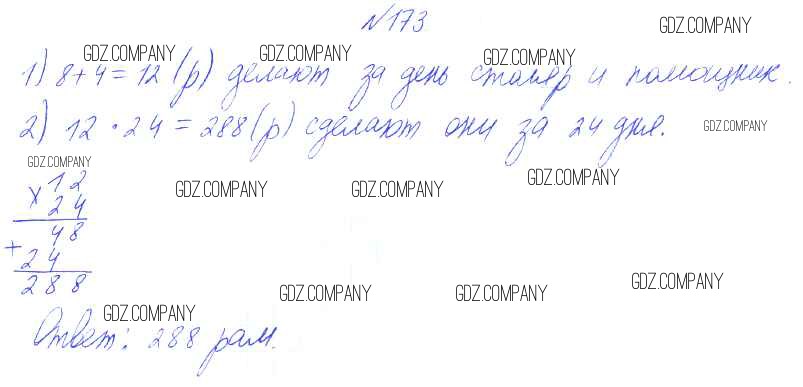 №173
GDZ.COMPANY
GDZ.COMPANY GDZ.COMPANY GDZ.COMPANY
1) 8+4=12 (р) делают за день столяр и помощник.
2) 12·24=288(р) сделают они за 24 дня.
GDZ.COMPANY
GDZ.COMPANY
GDZ.COMPANY GDZ.COMPANY GDZ.COMPANY
× 12
24
48
+ 24
288
GDZ.COMPANY GDZ.COMPANY GDZ.COMPANY GDZ.COMPANY
Ответ: 288 рам.